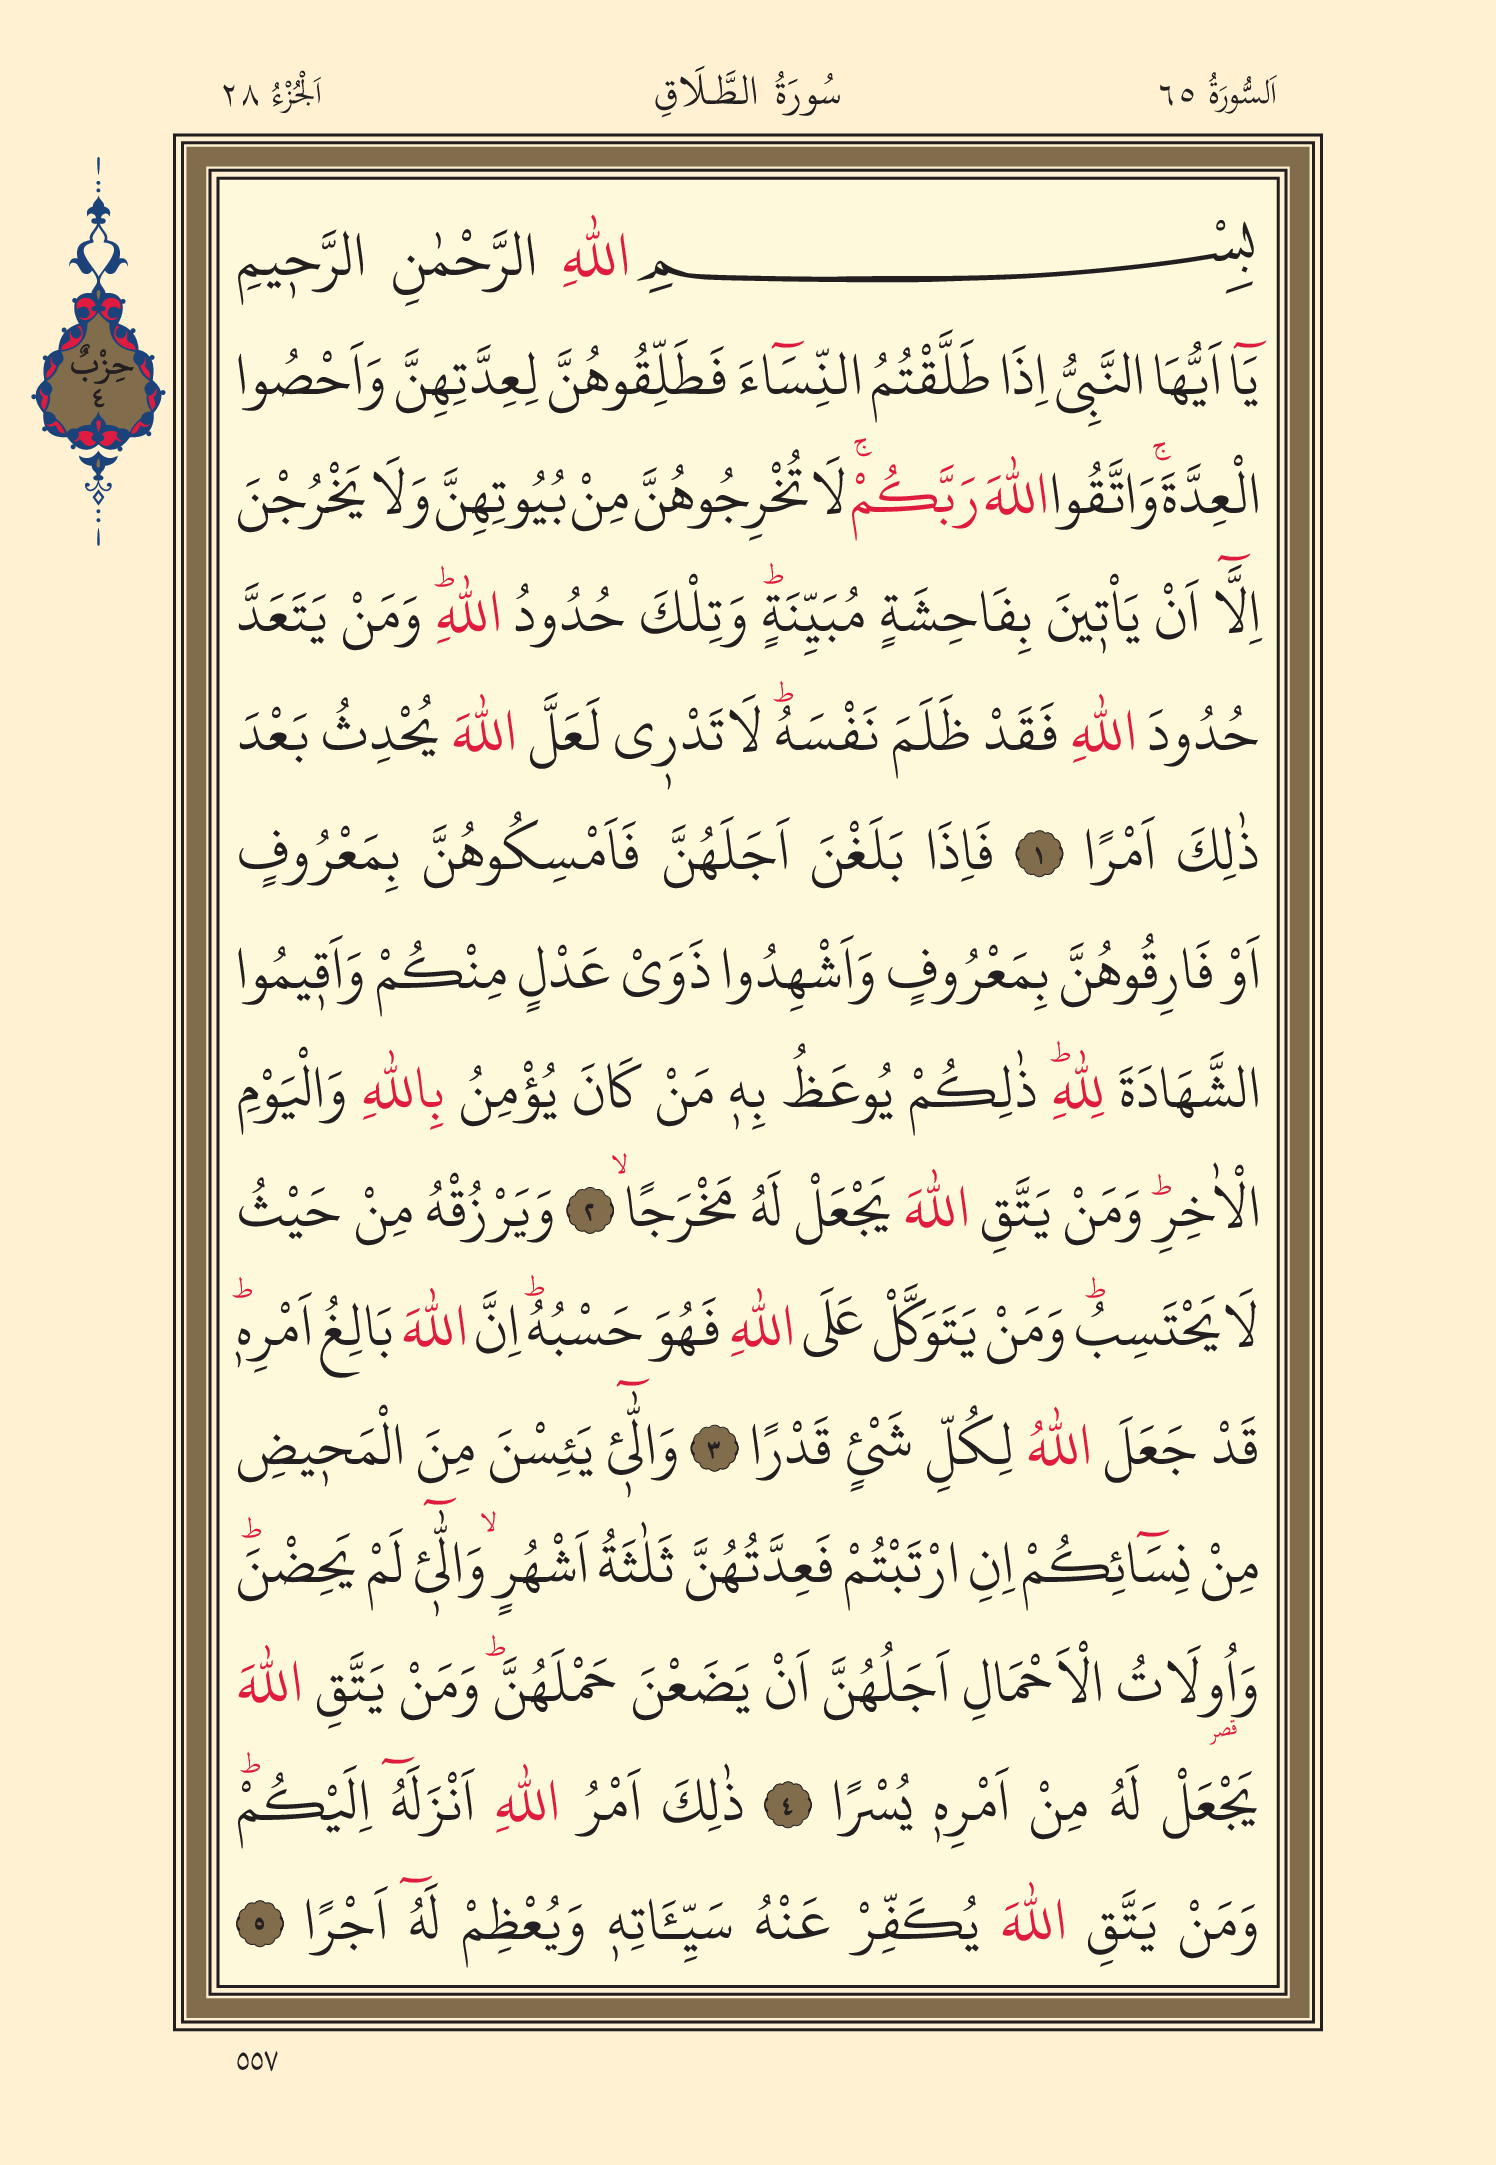 اَلسُّورَةُ ٦٥ سُورَةُ الطَّلَاقِ اَلْجُزْءُ ٢٨
حِزْبٌ
٤
بِسْمِ اللّٰهِ الرَّحْمٰنِ الرَّحٖيمِ
يَٓا اَيُّهَا النَّبِيُّ اِذَا طَلَّقْتُمُ النِّسَٓاءَ فَطَلِّقُوهُنَّ لِعِدَّتِهِنَّ وَاَحْصُوا
الْعِدَّةَۚ وَاتَّقُوا اللّٰهَ رَبَّكُمْۚ لَا تُخْرِجُوهُنَّ مِنْ بُيُوتِهِنَّ وَلَا يَخْرُجْنَ
اِلَّٓا اَنْ يَأْتٖينَ بِفَاحِشَةٍ مُبَيِّنَةٍؕ وَتِلْكَ حُدُودُ اللّٰهِؕ وَمَنْ يَتَعَدَّ
حُدُودَ اللّٰهِ فَقَدْ ظَلَمَ نَفْسَهُؕ لَا تَدْرٖى لَعَلَّ اللّٰهَ يُحْدِثُ بَعْدَ
ذٰلِكَ اَمْرًا ﴿١﴾ فَاِذَا بَلَغْنَ اَجَلَهُنَّ فَاَمْسِكُوهُنَّ بِمَعْرُوفٍ
اَوْ فَارِقُوهُنَّ بِمَعْرُوفٍ وَاَشْهِدُوا ذَوَىْ عَدْلٍ مِنْكُمْ وَاَقٖيمُوا
الشَّهَادَةَ لِلّٰهِؕ ذٰلِكُمْ يُوعَظُ بِهٖ مَنْ كَانَ يُؤْمِنُ بِاللّٰهِ وَالْيَوْمِ
الْاٰخِرِؕ وَمَنْ يَتَّقِ اللّٰهَ يَجْعَلْ لَهُ مَخْرَجًاۙ ﴿٢﴾ وَيَرْزُقْهُ مِنْ حَيْثُ
لَا يَحْتَسِبُؕ وَمَنْ يَتَوَكَّلْ عَلَى اللّٰهِ فَهُوَ حَسْبُهُؕ اِنَّ اللّٰهَ بَالِغُ اَمْرِهٖؕ
قَدْ جَعَلَ اللّٰهُ لِكُلِّ شَیْئٍ قَدْرًا ﴿٣﴾ وَالّٰٓـٖٔي يَئِسْنَ مِنَ الْمَحٖيضِ
مِنْ نِسَٓائِكُمْ اِنِ ارْتَبْتُمْ فَعِدَّتُهُنَّ ثَلٰثَةُ اَشْهُرٍۙ وَالّٰٓـٖٔي لَمْ يَحِضْنَؕ
وَاُولَاتُ الْاَحْمَالِ اَجَلُهُنَّ اَنْ يَضَعْنَ حَمْلَهُنَّؕ وَمَنْ يَتَّقِ اللّٰهَ
قصر
يَجْعَلْ لَهُ مِنْ اَمْرِهٖ يُسْرًا ﴿٤﴾ ذٰلِكَ اَمْرُ اللّٰهِ اَنْزَلَهُٓ اِلَيْكُمْؕ
وَمَنْ يَتَّقِ اللّٰهَ يُكَفِّرْ عَنْهُ سَيِّـَٔاتِهٖ وَيُعْظِمْ لَهُٓ اَجْرًا ﴿٥﴾
٥٥٧